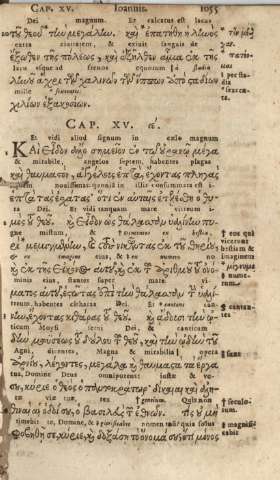 CAP. XV. Ioannis. 1055
Dei magnum. Et calcatus est lacus
τοῦ θεοῦ τὸν μεγάλην. καὶ ἐπατήθη ἡ ληνὸς
extra ciuitatem, & exiuit sanguis de
ἔξωθεν τῆς πόλεως, καὶ ἐξῆλθεν αἷμα ἐκ τῆς
lacu vsque ad frenos equorum
ληνοῦ ἄχρι τῶν χαλινῶν τῶν ἵππων ἀπὸ σταδίων
mille sexcentis.
χιλίων ἑξακοσίων.
CAP. XV.
Et vidi aliud signum in cælo magnum
ΚΑΙ εἶδον ἄλλο σημεῖον ἐν τῷ οὐρανῷ μέγα
& mirabile, angelos septem, habentes plagas
καὶ θαυμαστὸν, ἀγγέλους ἑπτὰ, ἔχοντας πληγὰς
septem nouissimas: quoniam in illis consummata est i-
ἑπτὰ τὰς ἐσχάτας· ὅτι ἐν αὐταῖς ἐτελέσθη ὁ θυ-
ra Dei. Et vidi tanquam mare vitreum i-
μὸς τοῦ θεοῦ. καὶ εἶδον ὡς θάλασσαν ὑαλίνην πυ-
gne mistum, &
ρὶ μεμιγμένην, καὶ τοὺς νικῶντας ἐκ τοῦ θηρίου
& imagine eius, & numero
καὶ ἐκ τῆς εἰκόνος αὐτοῦ, καὶ ἐκ τοῦ ἀριθμοῦ τοῦ ὀνό-
minis eius, stantes super mare vi-
ματος αὐτοῦ, ἑστῶτας ἐπὶ τὴν θάλασσαν τὴν ὑαλί-
treum, habentes citharas Dei. Et
νην, ἔχοντας κιθάρας τοῦ θεοῦ. καὶ ᾄδουσι τὴν ᾠ-
ticum Moysi serui Dei, & canticum
δὴν μωσέως τοῦ δούλου τοῦ θεοῦ, καὶ τὴν ᾠδὴν τοῦ
Agni, dicentes, Magna & mirabilia opera
ἀρνίου, λέγοντες, μεγάλα καὶ θαυμαστὰ τὰ ἔργα
tua, Domine Deus omnipotens: iustæ & ve-
σου, κύριε ὁ θεὸς ὁ παντοκράτωρ· δίκαιαι καὶ ἀλη-
ræ viæ tuæ, rex Quis non
θιναὶ αἱ ὁδοί σου, ὁ βασιλεὺς τῶν ἐθνῶν. τίς οὐ μὴ
timebit te, Domine, & nomen tuum? quia solus
φοβηθῇ σε, κύριε, καὶ δοξάσῃ τὸ ὄνομά σου; ὅτι μόνος
† eos qui
vicerunt
bestiam &
imaginem
† cantan-
tes
† sunt
† seculo-
rum.
† magnifi-
cabit